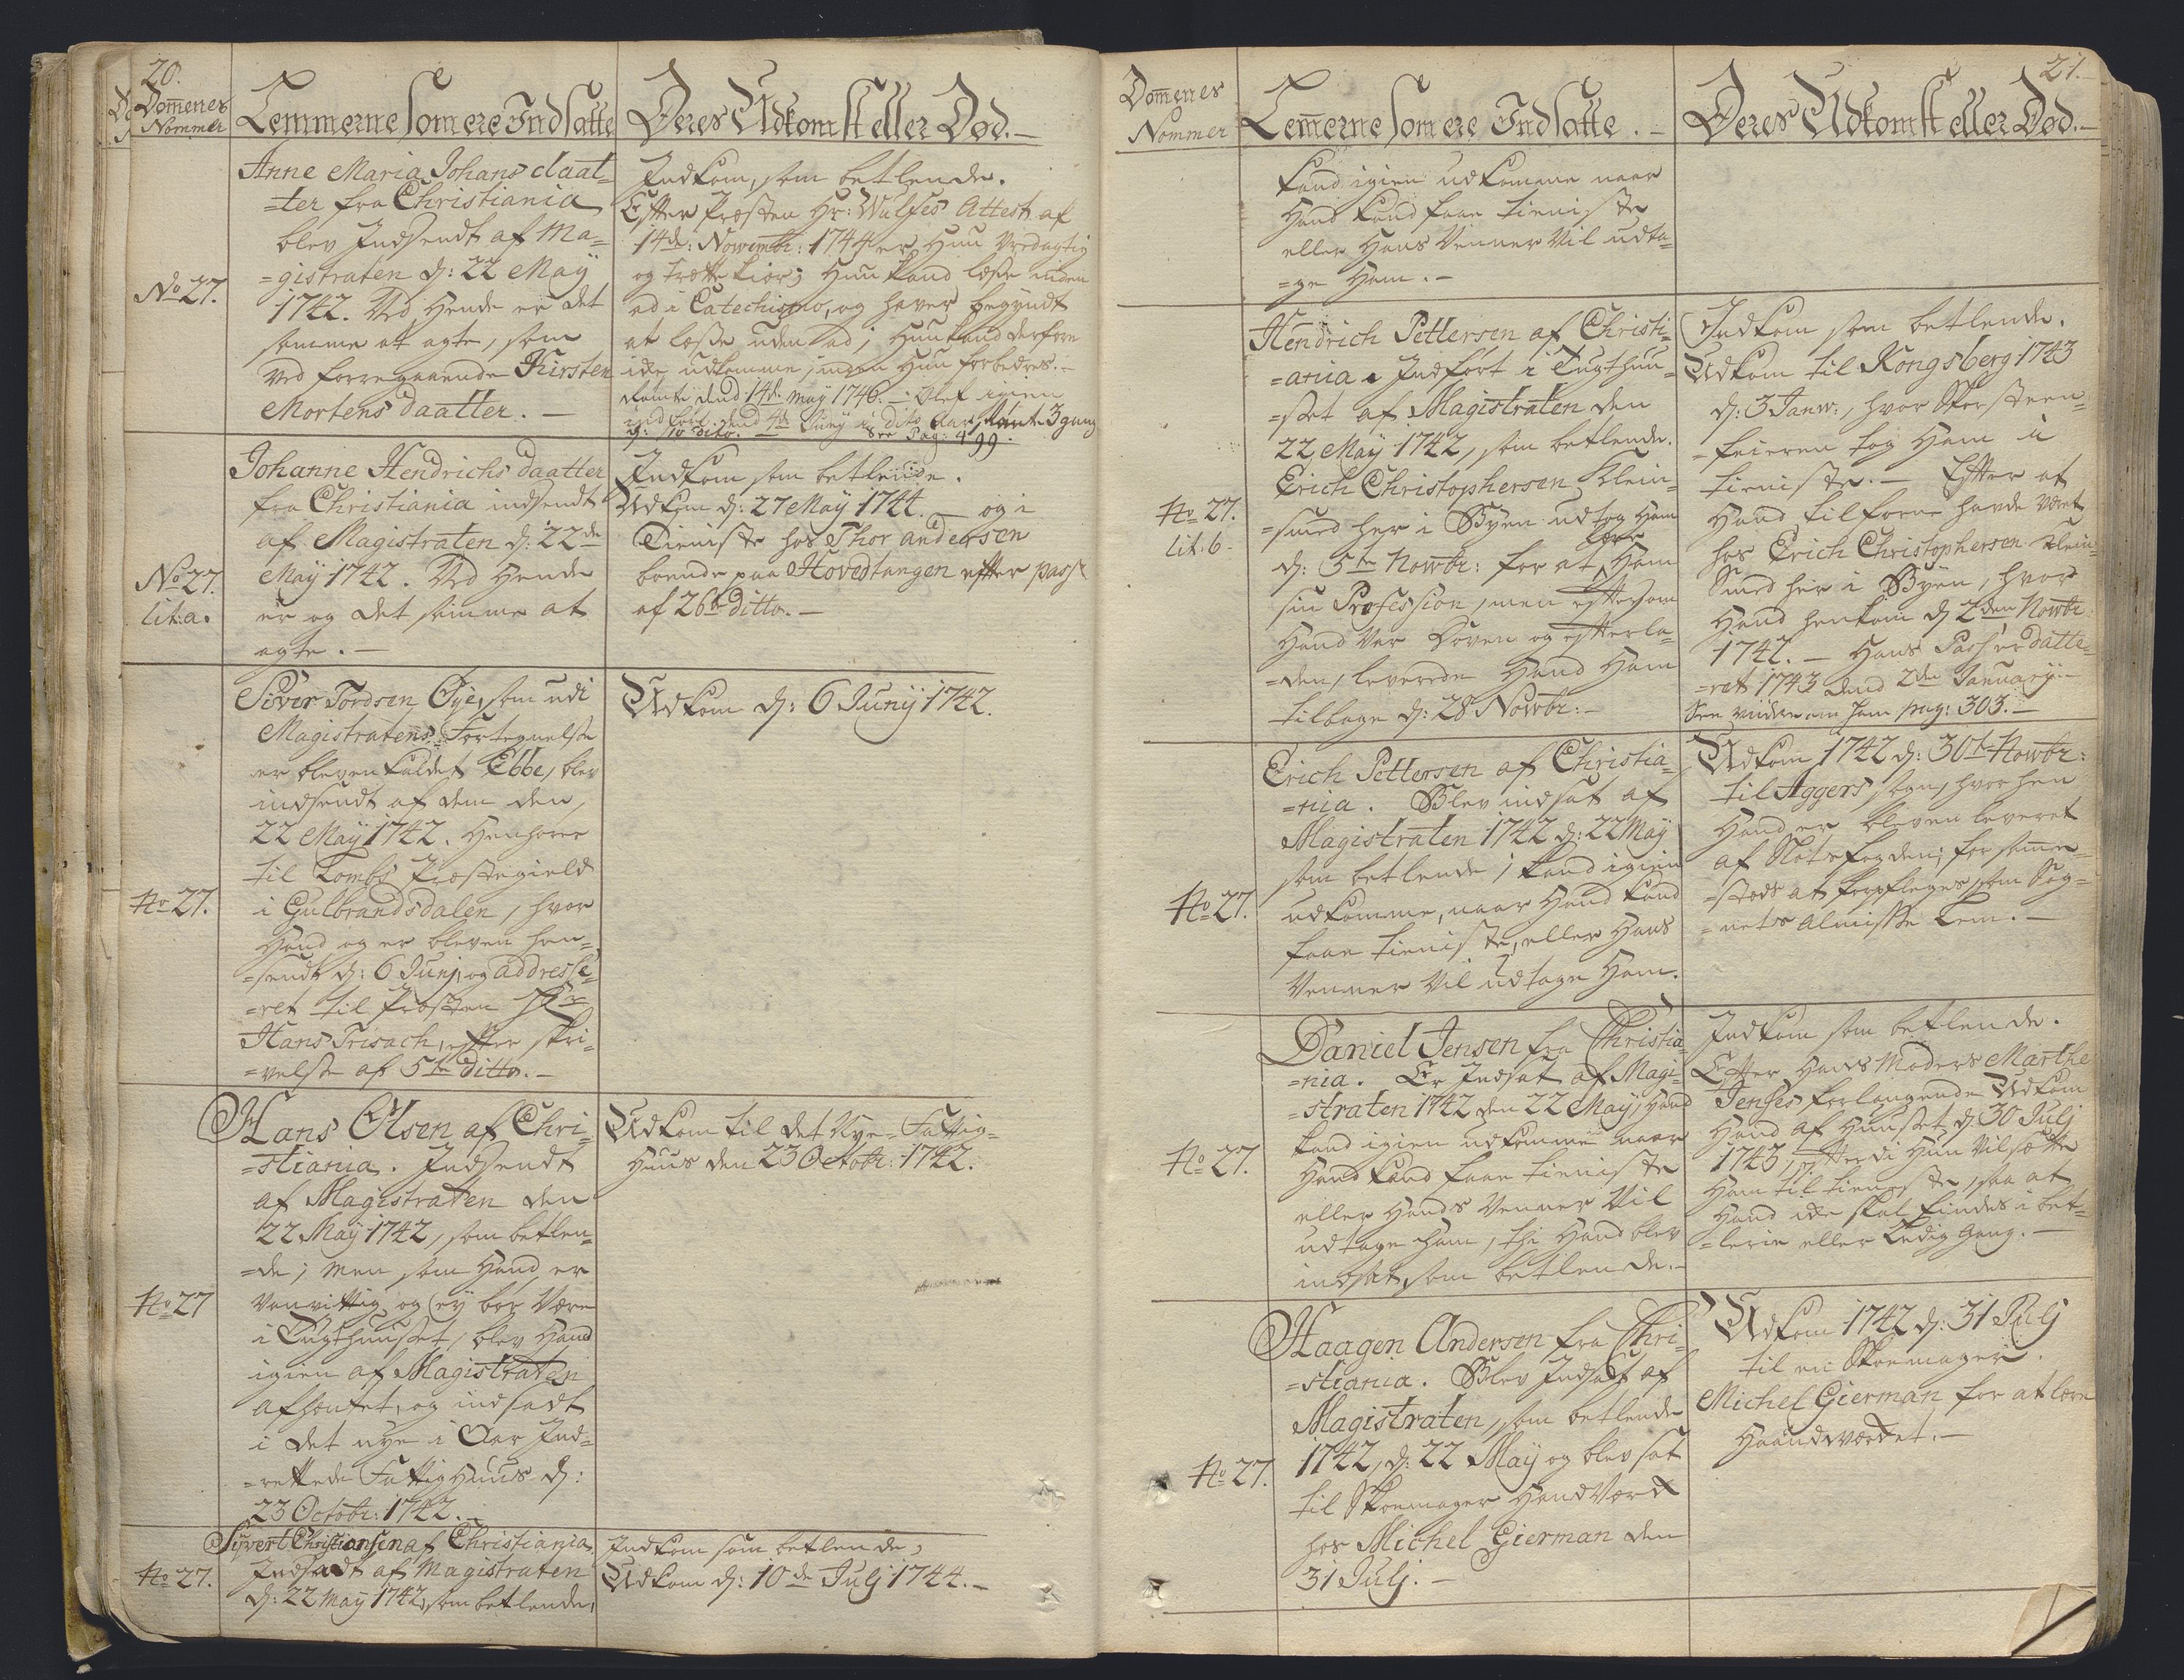 20.
Dom̅enes
Nommer
Lemmerne som ere Indsatte
Deres Udkomst eller Død.
No 27.
Anne Maria Johans daat=
=ter fra Christiania
blev Indsendt af Ma=
=gistraten d: 22 May
1742. Ved hende er det
samme at agte, som
ved forregaaende Kirsten
Mortens daatter. —
Indkom, som betlende.
Efter Præsten Hr: Wulfes Attest af
14de: Novemb: 1744 er Hun
og Hun kand læse inden
ad i Catechismo, og haver begyndt
at læse uden ad; Hun kand derfore
icke udkomme, inden Hun forbedres. —
Rømte dend 14de may 1746. — blef igien
indført dend 4de Juny i dito Aar, Rømte 3 gang
d: 10 dito. — See Pag: 499.
No 27.
lit: a.
Johanne Hendrichs daatter
fra Christiania indsendt
af Magistraten d: 22de
May 1742. Ved Hende
er og det samme at
agte. —
Indkom som betlende.
Udkom d: 27 May 1744. — og i
Tieniste hos Thor andersen
boende paa Hovedtangen efter pass
af 26de ditto. —
No 27.
Siver Tordsen Øye, som udi
Magistratens Fortegnelse
er bleven kaldet Ebbe, blev
indsendt af dem den,
22 May 1742. Henhører
til Lombs Præstegield
i Gulbrandsdalen, hvor
Hand og er bleven hen=
=sendt d: 6 Junj, og addresse=
=ret til Præsten Hr
Hans Trisach, efter skri=
=velse af 5te ditto. —
Udkom d: 6 Juny 1742.
No 27
Hans Olsen af Chri=
=stiania. Indsendt
af Magistraten den
22 May 1742, som betlen=
=de; men som Hand er
Vanvittig og ey bør Være
i Tugthuuset, blev Hand
igien af Magistraten
afhentet, og indsadt
i det nye i Aar Ind=
=rettede Fattighuus d:
23 Octobr: 1742. —
Udkom til det Nye Fattig=
Huus den 23 Octobr: 1742.
No 27.
Syvert Christiansen af Christiania
Indsadt af Magistraten
d: 22 May 1742, som betlende,
Indkom som betlende,
Udkom d: 10de Julj 1744. —
21. —
Dom̅enes
Nommer
Lem̅erne som ere Indsatte. —
Deres Udkomst eller Død. —
kand igien udkomme naar
Hand kand faae tieniste
eller Hans Venner Vil udta=
=ge Ham. —
No 27.
lit: b.
Hendrich Pettersen af Christi=
=ania. Indført i Tugthuu=
=set af Magistraten den
22 May 1742, som betlende.
Erich Christophersen Klein=
=smed her i Byen udtog Ham
d: 5te Novbr: for at lære Ham
sin Profession, men eftersom
Hand var Doven og efterla=
=den, leverede Hand Ham
tilbage d: 28 Novbr: —
Indkom som betlende.
Udkom til Kongsberg 1743
d: 3 Janw:, hvor Skorsteen=
=feieren tog Ham i
tieniste. — Efter at
Hand tilforne havde været
hos Erich Christophersen Klein=
Smed her i Byen, hvor
Hand henkom d 2den Novbr
1742. — Hans Pass er datte=
=ret 1743 dend 2den January —
See videre om ham pag: 303. —
No 27.
Erich Pettersen af Christia=
=nia. Blev indsat af
Magistraten 1742 d: 22 May
som betlende; kand igien
udkomme, naar Hand kand
faae tieniste, eller Hans
Venner Vil udtage Ham.
Udkom 1742 d: 30te Novbr:
til Aggers sogn, hvorhen
Hand er bleven leveret
af Slotsfogden; for sam̅e=
=steds at forpfleges som Sog=
=nets Almisse Lem. —
No 27.
Daniel Jensen fra Christia=
=nia. Er Indsat af Magi=
=straten 1742 den 22 May, Hand
kand igien udkomme naar
Hand kand faae tieniste
eller Hands Venner Vil
udtage ham, thi Hand blev
indsat som betlende. —
Indkom som betlende.
Efter Hans Moders Marthe
Jenses forlangende Udkom
Hand af Huuset d: 30 Julj
1743, efterdi Hun Vil sætte
Ham til tieniste, saa at
Hand icke skal findes i bet=
=lerie eller Ledig gang. —
No 27.
Haagen Andersen fra Chri=
=stiania. Blev Indsadt af
Magistraten, som betlende
1742, d: 22 May og blev sat
til Skoemager HandVærck
hos Michel Gierman den
31 Julj. —
Udkom 1742 d: 31 Julj
til en Skoemager.
Michel Gierman for at lære
Haandværcket. —